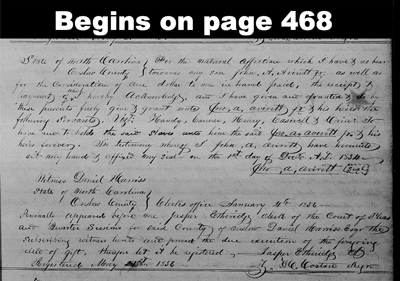 Begins on page 468
State of North Carolina } For the natural affection which I have & do bear
Onslow County } towards my son John, A, Averitt Jr. as well as
for the Consideration of one dollar to me in hand paid, the receipt &
payment of is hereby Acknowledged, and I have given and granted & do by
these presents freely give & grant unto Jno, a, averitt Jr & his heirs the
following Servants. Viz; Handy, Conner, Henry, Caswell & To
have and to hold the said slaves unto him the said Jno. a. averitt Jr. & his
heirs forever. In testimony whereof I John, a, Averitt have hereunto
set my hand & affixed my seal on the 1st day of Dec. A.D. 1854
Jno, a, averitt (Seal)
Witness Daniel Harriss
State of North Carolina }
Onslow County } Clerks office January 4th 1856
Personally appeared before me Jasper Etheridge Clerk of the Court of Pleas
and Quarter Sessions for said County of Onslow Daniel Harriss Esqr the
Subscribing witness hereto and proved the due execution of the foregoing
deed of gift, therefore let it be registered, Jasper Etheridge Clk
Registered May 1856